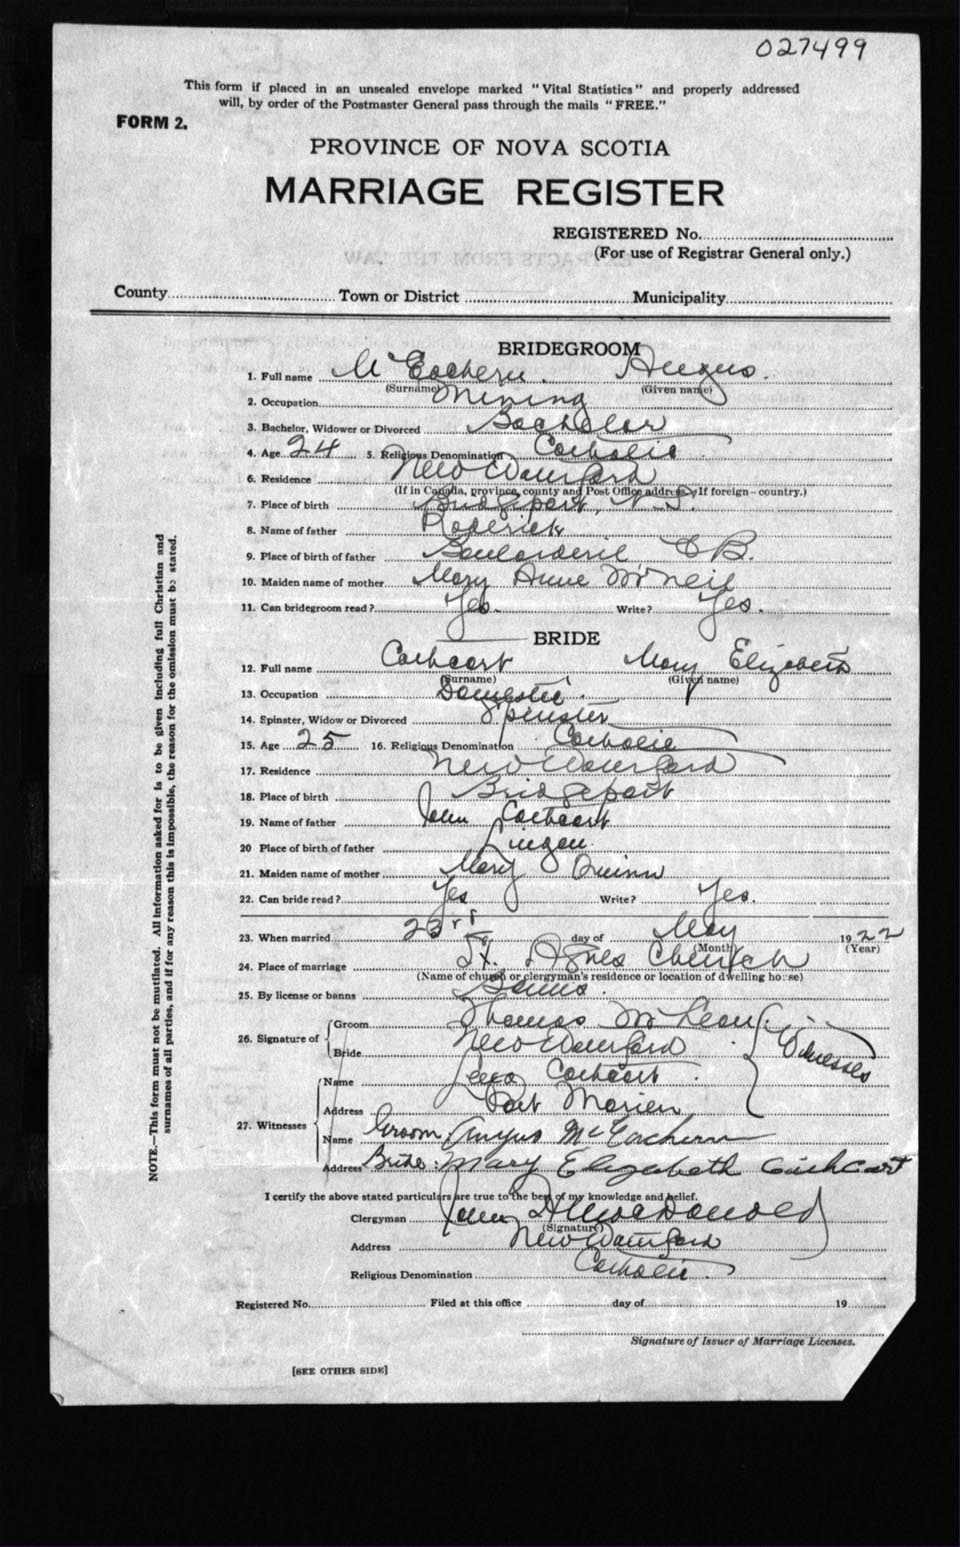 027499
This form if placed in an unsealed envelope marked "Vital Statistics" and properly addressed
will, by order of the Postmaster General pass through the mails "FREE."
FORM 2.
PROVINCE OF NOVA SCOTIA
MARRIAGE REGISTER
REGISTERED No.
(For use of Registrar General only.)
County Town or District Municipality
BRIDEGROOM
1. Full name McEachern Angus
(Surname) (Given name)
2. Occupation Mining
3. Bachelor, Widower or Divorced Bachelor
4. Age 24 5. Religious Denomination Catholic
6. Residence New Waterford
(If in Canada, province, county and Post Office address, If foreign—country.)
7. Place of birth Bridgeport, N.S.
8. Name of father Roderick
9. Place of birth of father Boulardrie C B.
10. Maiden name of mother Mary Anne McNeil
11. Can bridegroom read? Yes. Write? Yes.
BRIDE
12. Full name Cathcart Mary Elizabeth
(Surname) (Given name)
13. Occupation Domestic
14. Spinster, Widow or Divorced Spinster
15. Age 25 16. Religious Denomination Catholic
17. Residence New Waterford
18. Place of birth Bridgeport
19. Name of father John Cathcart
20 Place of birth of father Lingan
21. Maiden name of mother Mary Quinn
22. Can bride read? Yes Write? Yes.
23. When married 23rd day of May 1922
(Month) (Year)
24. Place of marriage St. Agnes Church
(Name of church or clergyman's residence or location of dwelling house)
25. By license or banns Banns.
26. Signature of Groom Thomas McLean
Bride New Waterford Witnesses
Name Cathcart
Address Port Morien
27. Witnesses
Name Groom Angus McEachern
Address Bride: Mary Elizabeth Cathcart
I certify the above stated particulars are true to the best of my knowledge and belief.
Clergyman MacDonald
(Signature)
Address New Waterford
Religious Denomination Catholic.
Registered No. Filed at this office day of 19
Signature of Issuer of Marriage Licenses.
[SEE OTHER SIDE]
NOTE.—This form must not be mutilated. All information asked for is to be given including full Christian and
surnames of all parties, and if for any reason this is impossible, the reason for the omission must be stated.